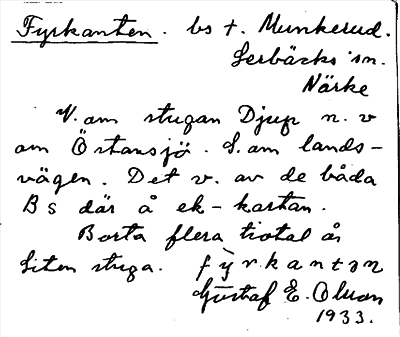 Fyrkanten. bs t. Munkerud.
Lerbäcks sn.
Närke
V. om stugan Djup n. v
om Östansjö. S. om lands-
vägen. Det v. av de båda
Bs där å ek-kartan.
Borta flera tiotal år
Liten stuga. fỳrkantən
Gustaf E. Olsson
1933.